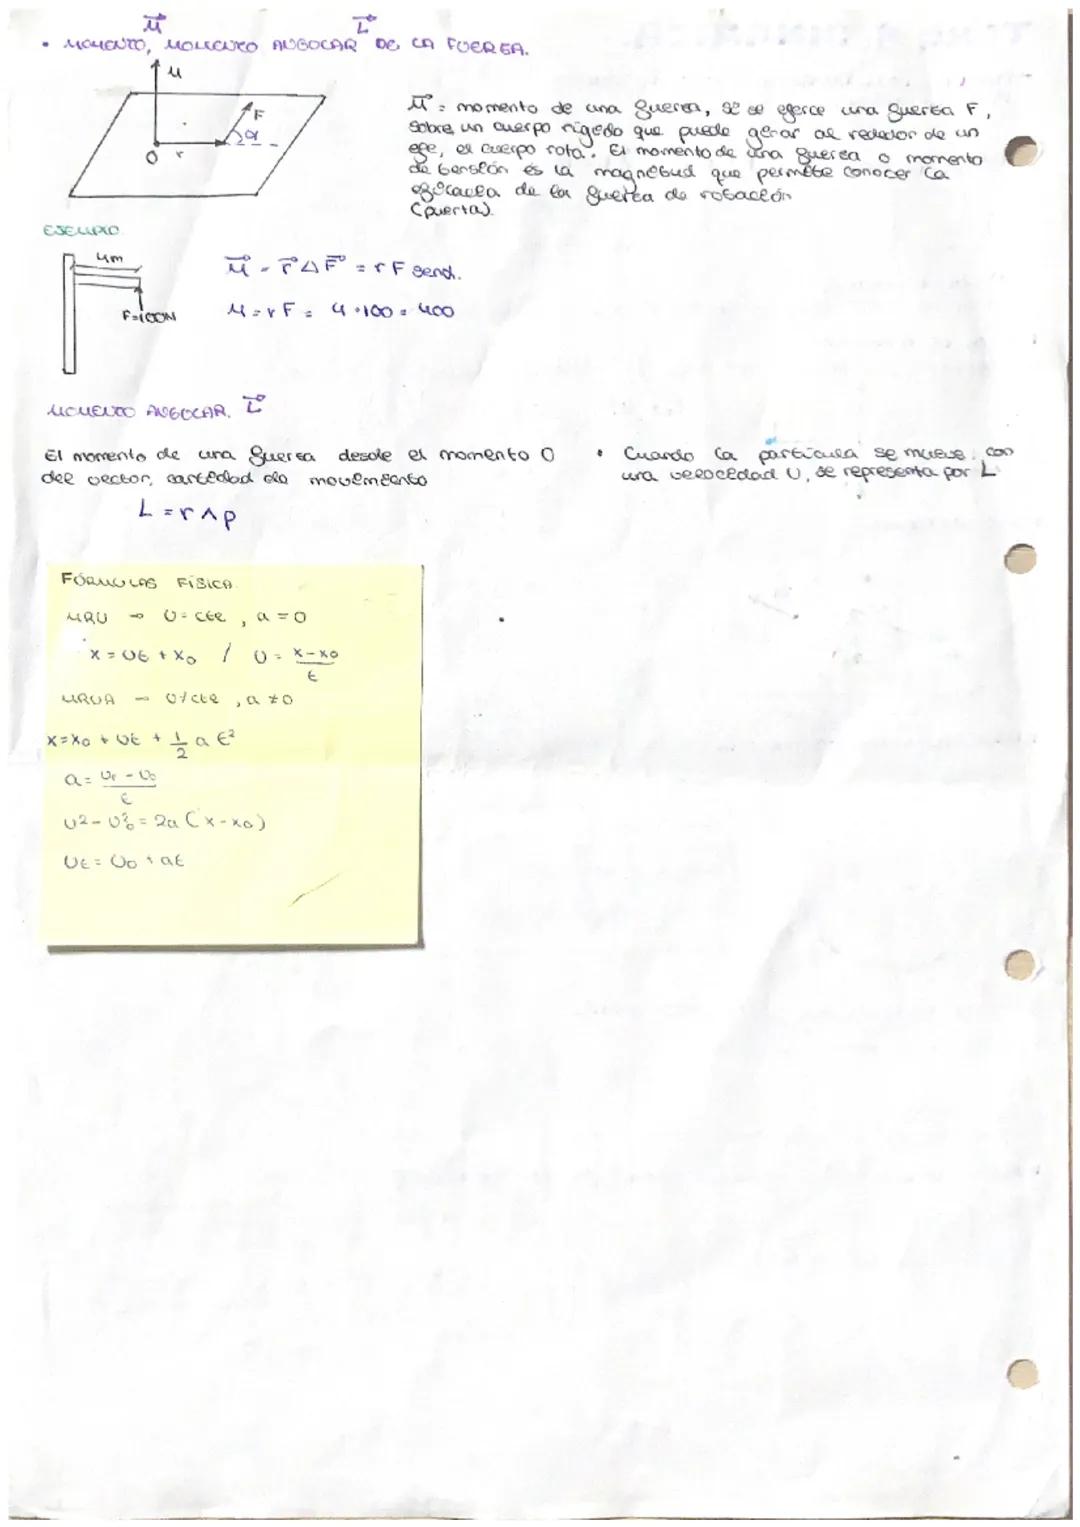 M⃗ L⃗
• MOMENTO, MOMENTO ANGULAR DE LA FUERZA.
M
F
α
O r
M⃗ = momento de una fuerza, si se egerce una fuerza F,
sobre un cuerpo rígido que puede gerar al rededor de un
eje, el cuerpo rota. El momento de una fuerza o momento
de torsión es la magnitud que permite conocer la
eficacia de la fuerza de rotación
(puerta).
EJEMPLO
4m
F=100N
M⃗ = r⃗ Δ F⃗ = r F senα.
M = r F = 4 · 100 = 400
MOMENTO ANGULAR. L⃗
El momento de una fuerza desde el momento O
del vector, cantidad de movimiento
L = r ∧ p
• Cuando la partícula se mueve con
una velocidad v, se representa por L
FÓRMULAS FÍSICA
MRU → v = cte, a = 0
x = vt + x₀ / v = x - x₀ / t
MRUA → v ≠ cte, a ≠ 0
x = x₀ + vt + 1/2 a t²
a = vf - v₀ / t
v² - v₀² = 2a (x - x₀)
vt = v₀ + at